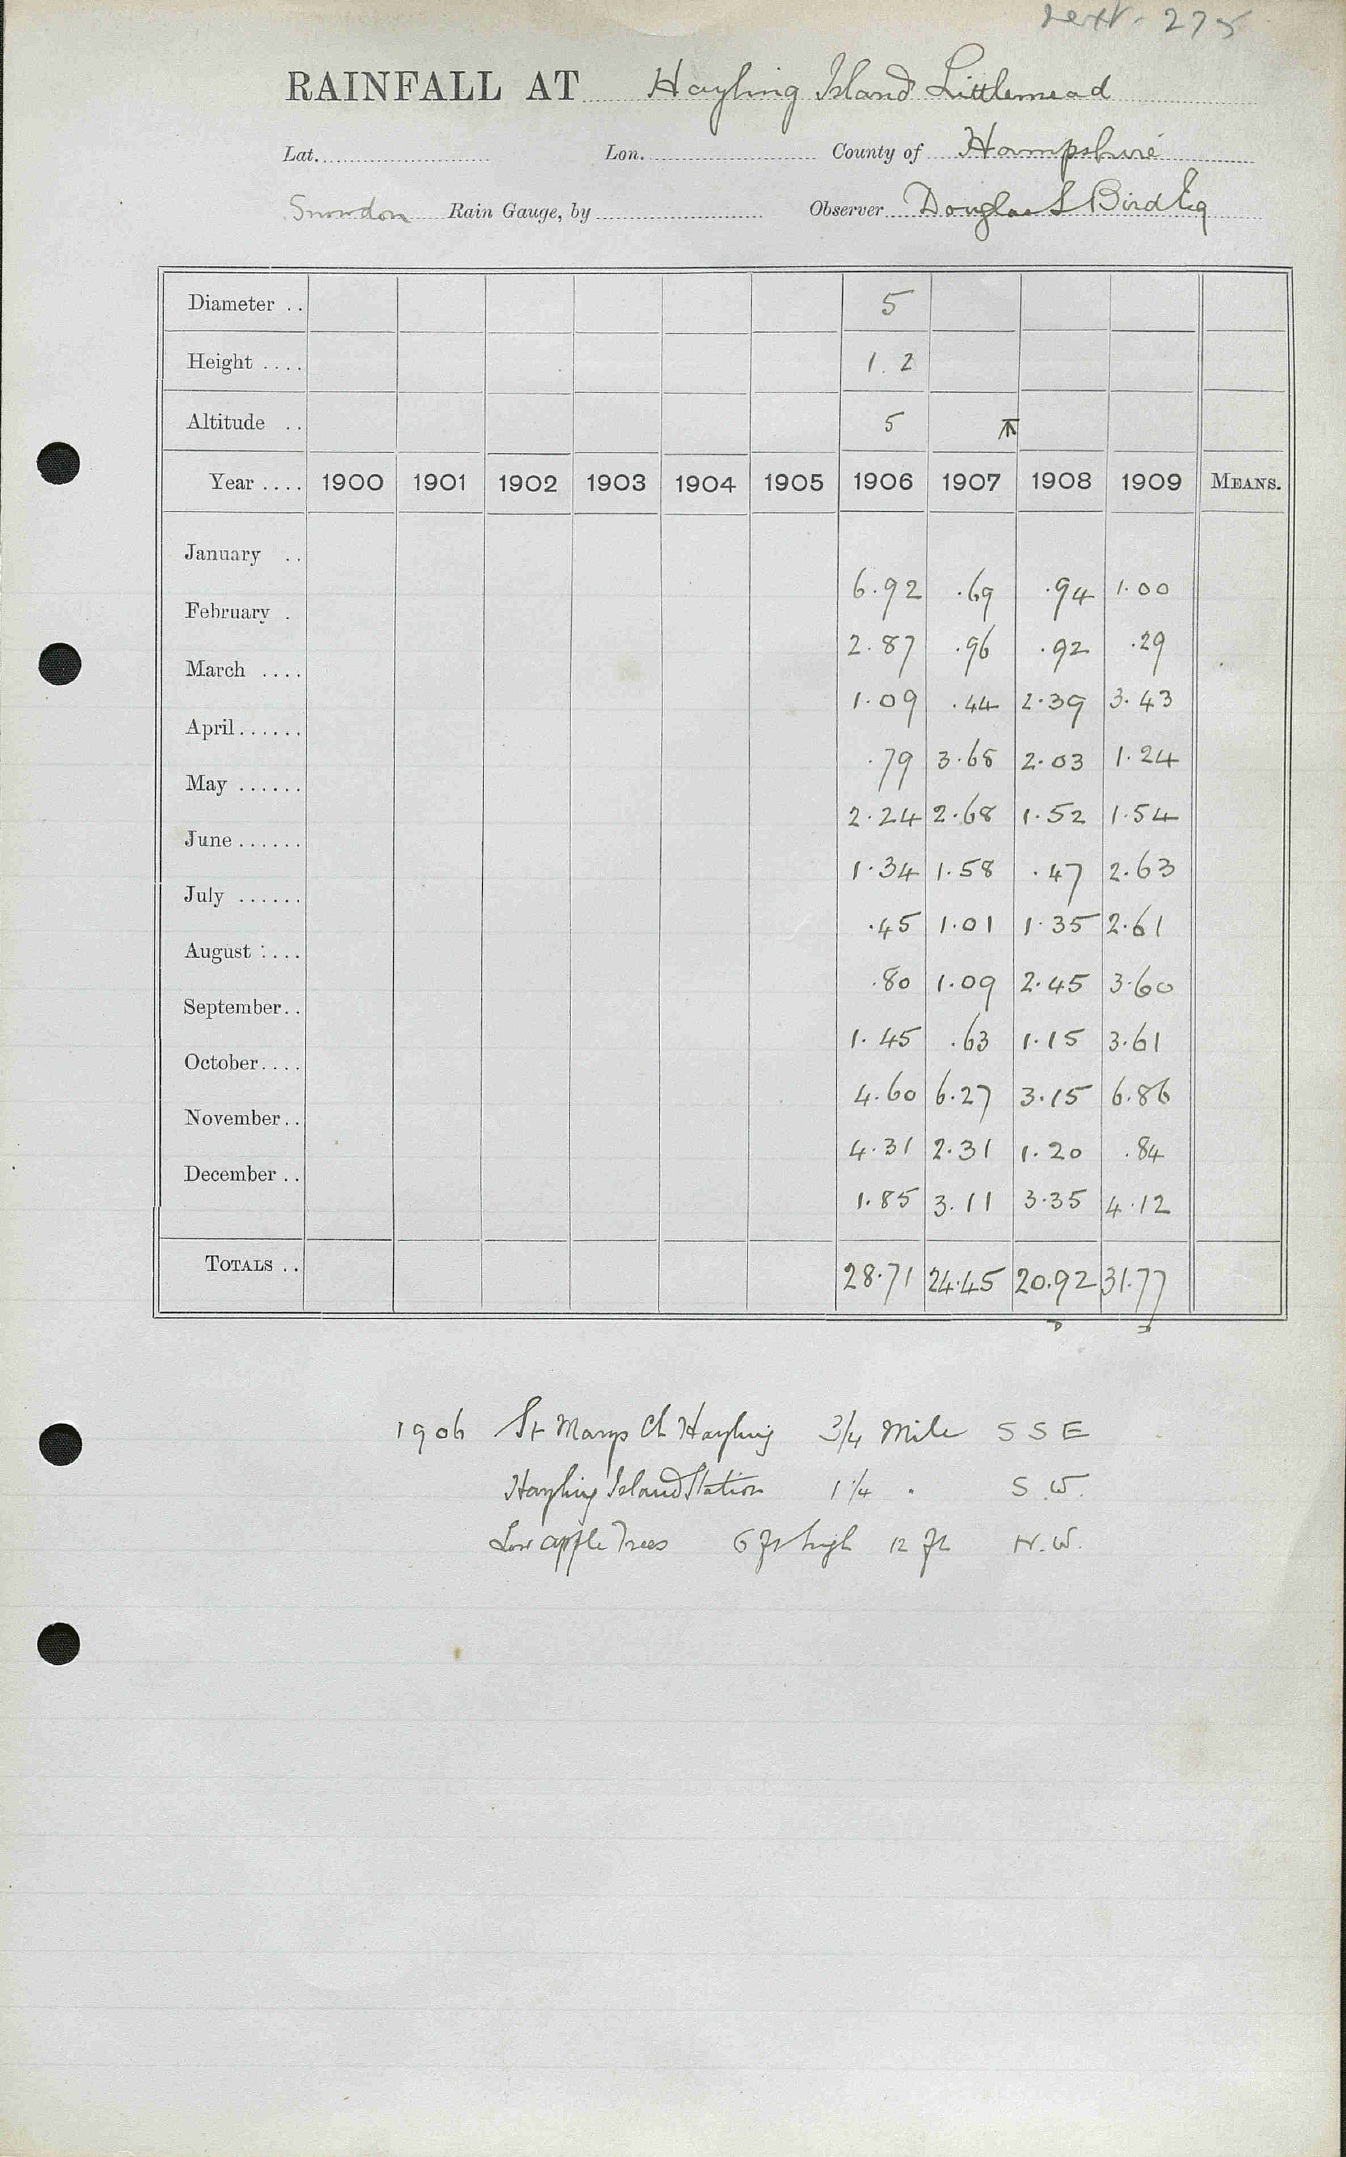 275
RAINFALL AT Hayling Island Littlemead
Lat. Lon. County of Hampshire
Snowdon Rain Gauge, by Observer Douglas S Bird Esq
Diameter .. 5
Height .... 1. 2
Altitude .. 5
Year .... 1900 1901 1902 1903 1904 1905 1906 1907 1908 1909 MEANS.
January .. 6.92 .69 .94 1.00
February . 2.87 .96 .92 .29
March .... 1.09 .44 2.39 3.43
April...... .79 3.68 2.03 1.24
May ...... 2.24 2.68 1.52 1.54
June...... 1.34 1.58 .47 2.63
July ...... .45 1.01 1.35 2.61
August .... .80 1.09 2.45 3.60
September.. 1.45 .63 1.15 3.61
October.... 4.60 6.27 3.15 6.86
November.. 4.31 2.31 1.20 .84
December .. 1.85 3.11 3.35 4.12
TOTALS .. 28.71 24.45 20.92 31.77
1906 St Marys Ch Hayling 3/4 Mile S S E
Hayling Island Station 1 1/4 " S.W.
Low apple Trees 6 ft high 12 ft N.W.